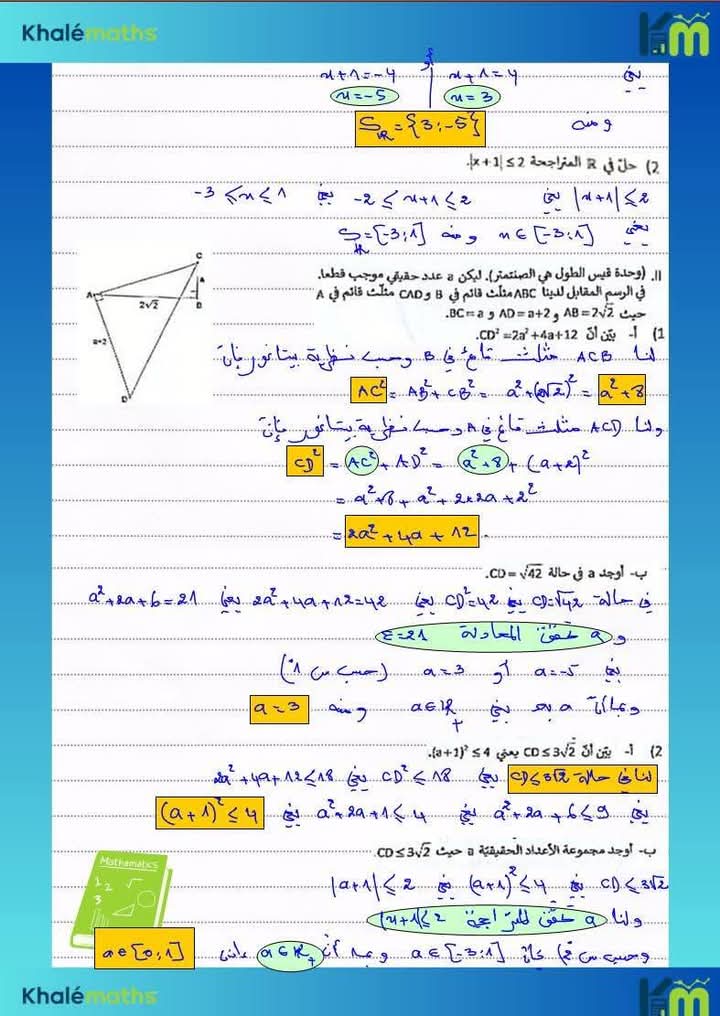 Khalémaths
Km
يعني x+1=4 أو x+1=-4
x=3 x=-5
ومنه S_ℝ={3;-5}
2) حلّ في ℝ المتراجحة |x+1| ≤ 2.
|x+1| ≤ 2 يعني -2 ≤ x+1 ≤ 2 يعني -3 ≤ x ≤ 1
يعني x ∈ [-3;1] ومنه S_ℝ=[-3;1]
II. (وحدة قيس الطول هي الصنتمتر). ليكن a عدد حقيقي موجب قطعا.
في الرسم المقابل لدينا ABC مثلّث قائم في B و CAD مثلّث قائم في A
حيث AB=2√2 و AD=a+2 و BC=a.
C
A
a
2√2
B
a+2
D
1) أ- بيّن أنّ CD²=2a²+4a+12.
لنا ACB مثلث قائم في B وحسب نظرية بيتاغور فإن
AC² = AB²+CB² = a²+(2√2)² = a²+8
ولنا ACD مثلث قائم في A وحسب نظرية بيتاغور فإن
CD² = AC² + AD² = a²+8 + (a+2)²
= a²+8+a²+2×2a+2²
= 2a²+4a+12.
ب- أوجد a في حالة CD=√42.
في حالة CD=√42 يعني CD²=42 يعني 2a²+4a+12=42 يعني a²+2a+6=21
و a تحقق المعادلة E=21
يعني a=-5 أو a=3 (حسب س 1)
وبما أن a بعد يعني a∈ℝ₊ ومنه a=3
2) أ- بيّن أنّ CD ≤ 3√2 يعني (a+1)² ≤ 4.
لنا في حالة CD ≤ 3√2 يعني CD² ≤ 18 يعني 2a²+4a+12 ≤ 18
يعني a²+2a+6 ≤ 9 يعني a²+2a+1 ≤ 4 يعني (a+1)² ≤ 4
ب- أوجد مجموعة الأعداد الحقيقيّة a حيث CD ≤ 3√2.
CD ≤ 3√2 يعني (a+1)² ≤ 4 يعني |a+1| ≤ 2
ولنا a تحقق المتراجحة |x+1| ≤ 2
وحسب س 2) فإن a∈[-3;1] وبما أن a∈ℝ₊ فإن a∈[0;1]
Mathematics
1 2 √
3
Khalémaths
Km